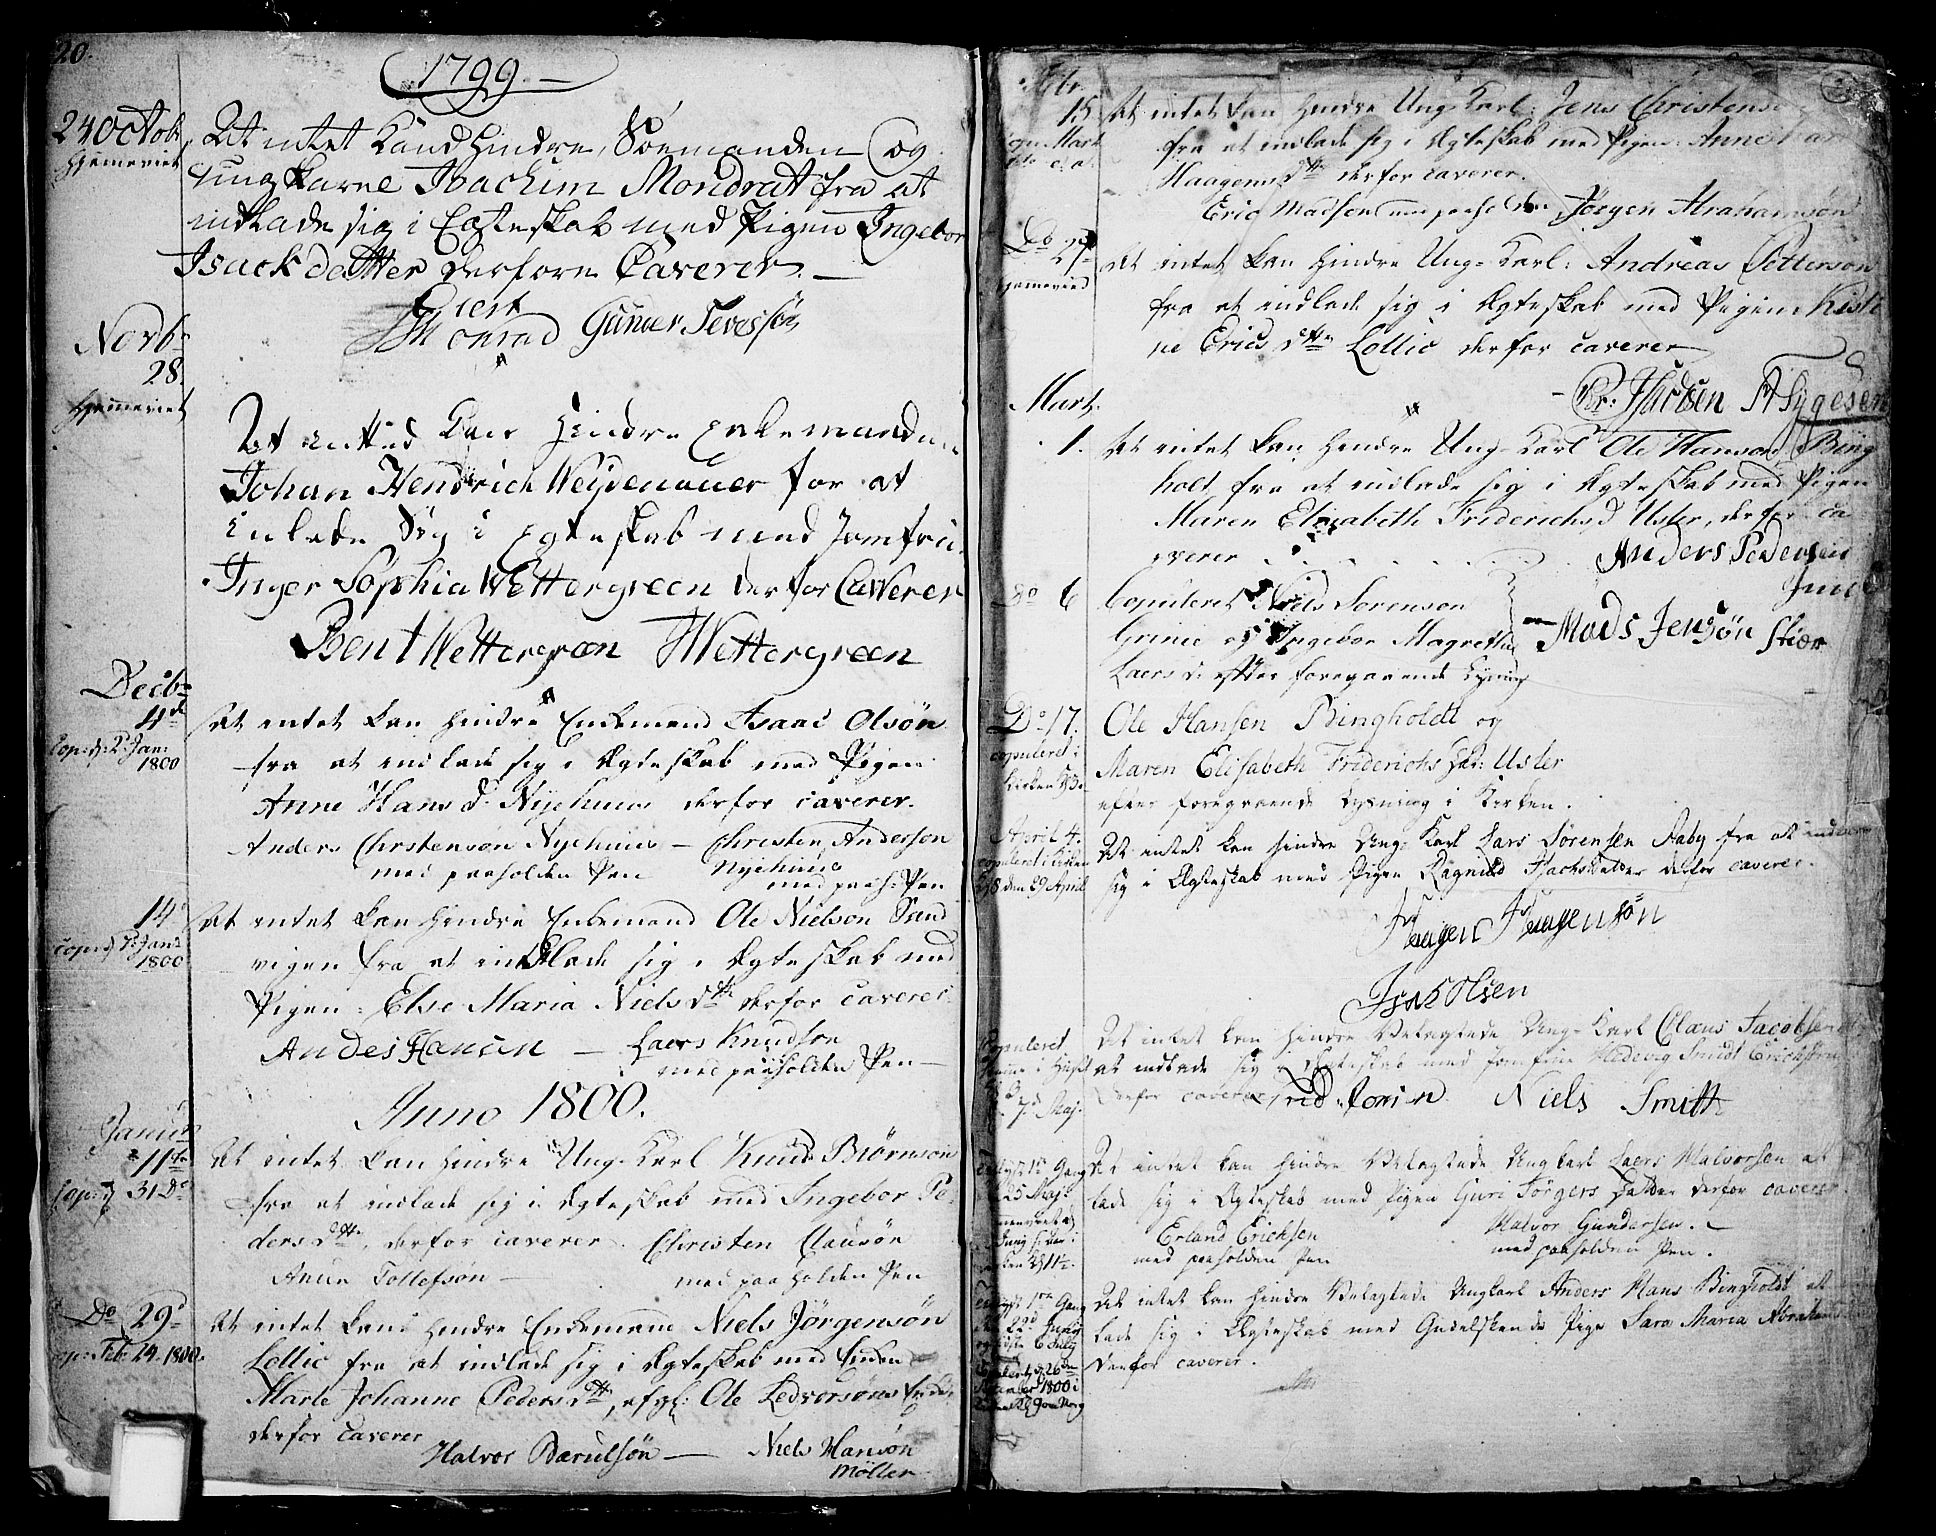 20.
1799
24 Octob.
Hjemeviet
At intet Kand Hindre, Söemanden og
ung karl Joachim Mondrat fra at
indlade sig i Ecteskab med Pigen Ingebor
Isack detter derfore Caverer.
Giert
Monrad Gunder Tevessön
Novb.
28.
Hjemeviet
At intted Kan Hindre Enkemanden
Johan Hendrich Weydenauer for at
inlade Sig i Egteskab med Jomfru
Inger Sophia Wettergreen derfor CaWerer
Bent Wettergreen Wettergreen
Decb.
4d
Cop: d: 2 Jan:
1800
At intet kan hindre Enkemand Isaac Olsøn
fra at indlade sig i Ægteskab med Pigen
Anne Hans d. Nyehuus derfor caverer.
Anders Chrstensøn Nyehuus — Christen Anderson
med paaholden Pen Nyehuus
med paah: Pen
14
Cop: d 7 Jan:
1800
At intet kan hindre Enkemand Ole Nielson Sand
vigen fra at indlade sig i Ægteskab med
Pigen Else Maria Niels dtr derfor caverer
Andes Hansen — Laers Knudson
med paaholden Pen —
Anno 1800.
Januar
11te
Cop: d 31 Do
At intet kan hindre Ung-Karl Knud Biørnson
fra at indlade sig i Ægteskab med Ingebor Pe-
ders dtr, derfor caverer Christen Clausøn
Anun Tollefsøn — med paaholden Pen
Do 29d
Cop: Feb 24. 1800.
At intet kan hindre Enkemand Niels Jörgensön
Lollic fra at indlade sig i Ægteskab med Enken
Marte Johanne Peders dtr, afgl: Ole Ledvorsøns Enke
derfor caverer
Halvor Bærulsön — Niels Hansøn
Möller
15
Mart
At intet kan hindre Ung-Karl: Jens Christens
fra at indlade sig i Ægteskab med Pigen: Anne
Haagens dtr derfor caverer.
Eric Madsen med paahol den Jörgen Abrahamsön
Do 27
Hjemevied
At intet kan hindre Ung-Karl: Andreas Petterson
fra at indlade sig i Ægteskab med Pigen Kisti
ne Erics dtr Lollic derfor caverer
Hygesen
Mart.
1.
At intet kan hindre Ung-Karl Ole Hanson Bing
holt fra at indlade sig i Ægteskab med Pigen
Maren Elizabeth Friderichs d Uster, derfor ca
verer
Anders Pedersen
Do 6
Copuleret Niels Sorenson
Grinie og Ingebor Magrethe
Laers d. efter foregaaende Lysning
Mads Jensön Stier
Do 17.
copuleret i
Kirken
Ole Hansen Bingholdt og
Maren Elisabeth Friderichs Datr: Uster
efter foregaaende Lysning i Kirken.
April 4.
copuleret i Kirken
den 29 April
Det intet kan hindre Ung-Karl Lars Sørensen Aaby fra at indlade
sig i Ægteskab med Pigen Ragnild Isachsdatter derfor caverer.
Haagen Haagensön
Isak Olsen
Copuleret
hieme i Huset
7 Maj.
Det intet kan hindre Velagtede Ung-Karl Claus Jacobsen
at indlade sig i Ægteskab med Jomfrue Hedevig Smidt Erichsen
derfor caverer Niels Smith
25 Maj
Det intet kan hindre Velagtede Ungkarl Laers Halvorsen at
lade sig i Ægteskab med Pigen Guri Jörgers Datter derfor caverer
Erland Erichsen Halvor Gundersen.
med paaholden Pen med paaholden Pen.
1ste Gang
den 22d Juny
sidste 6 July
Copuleret d 26de
1800 i
Det intet kan hindre Velagtede Ungkarl Anders Hans Bingholdt at
lade sig i Ægteskab med Gudelskende Pige Sara Maria Abrahams
derfor caverer.